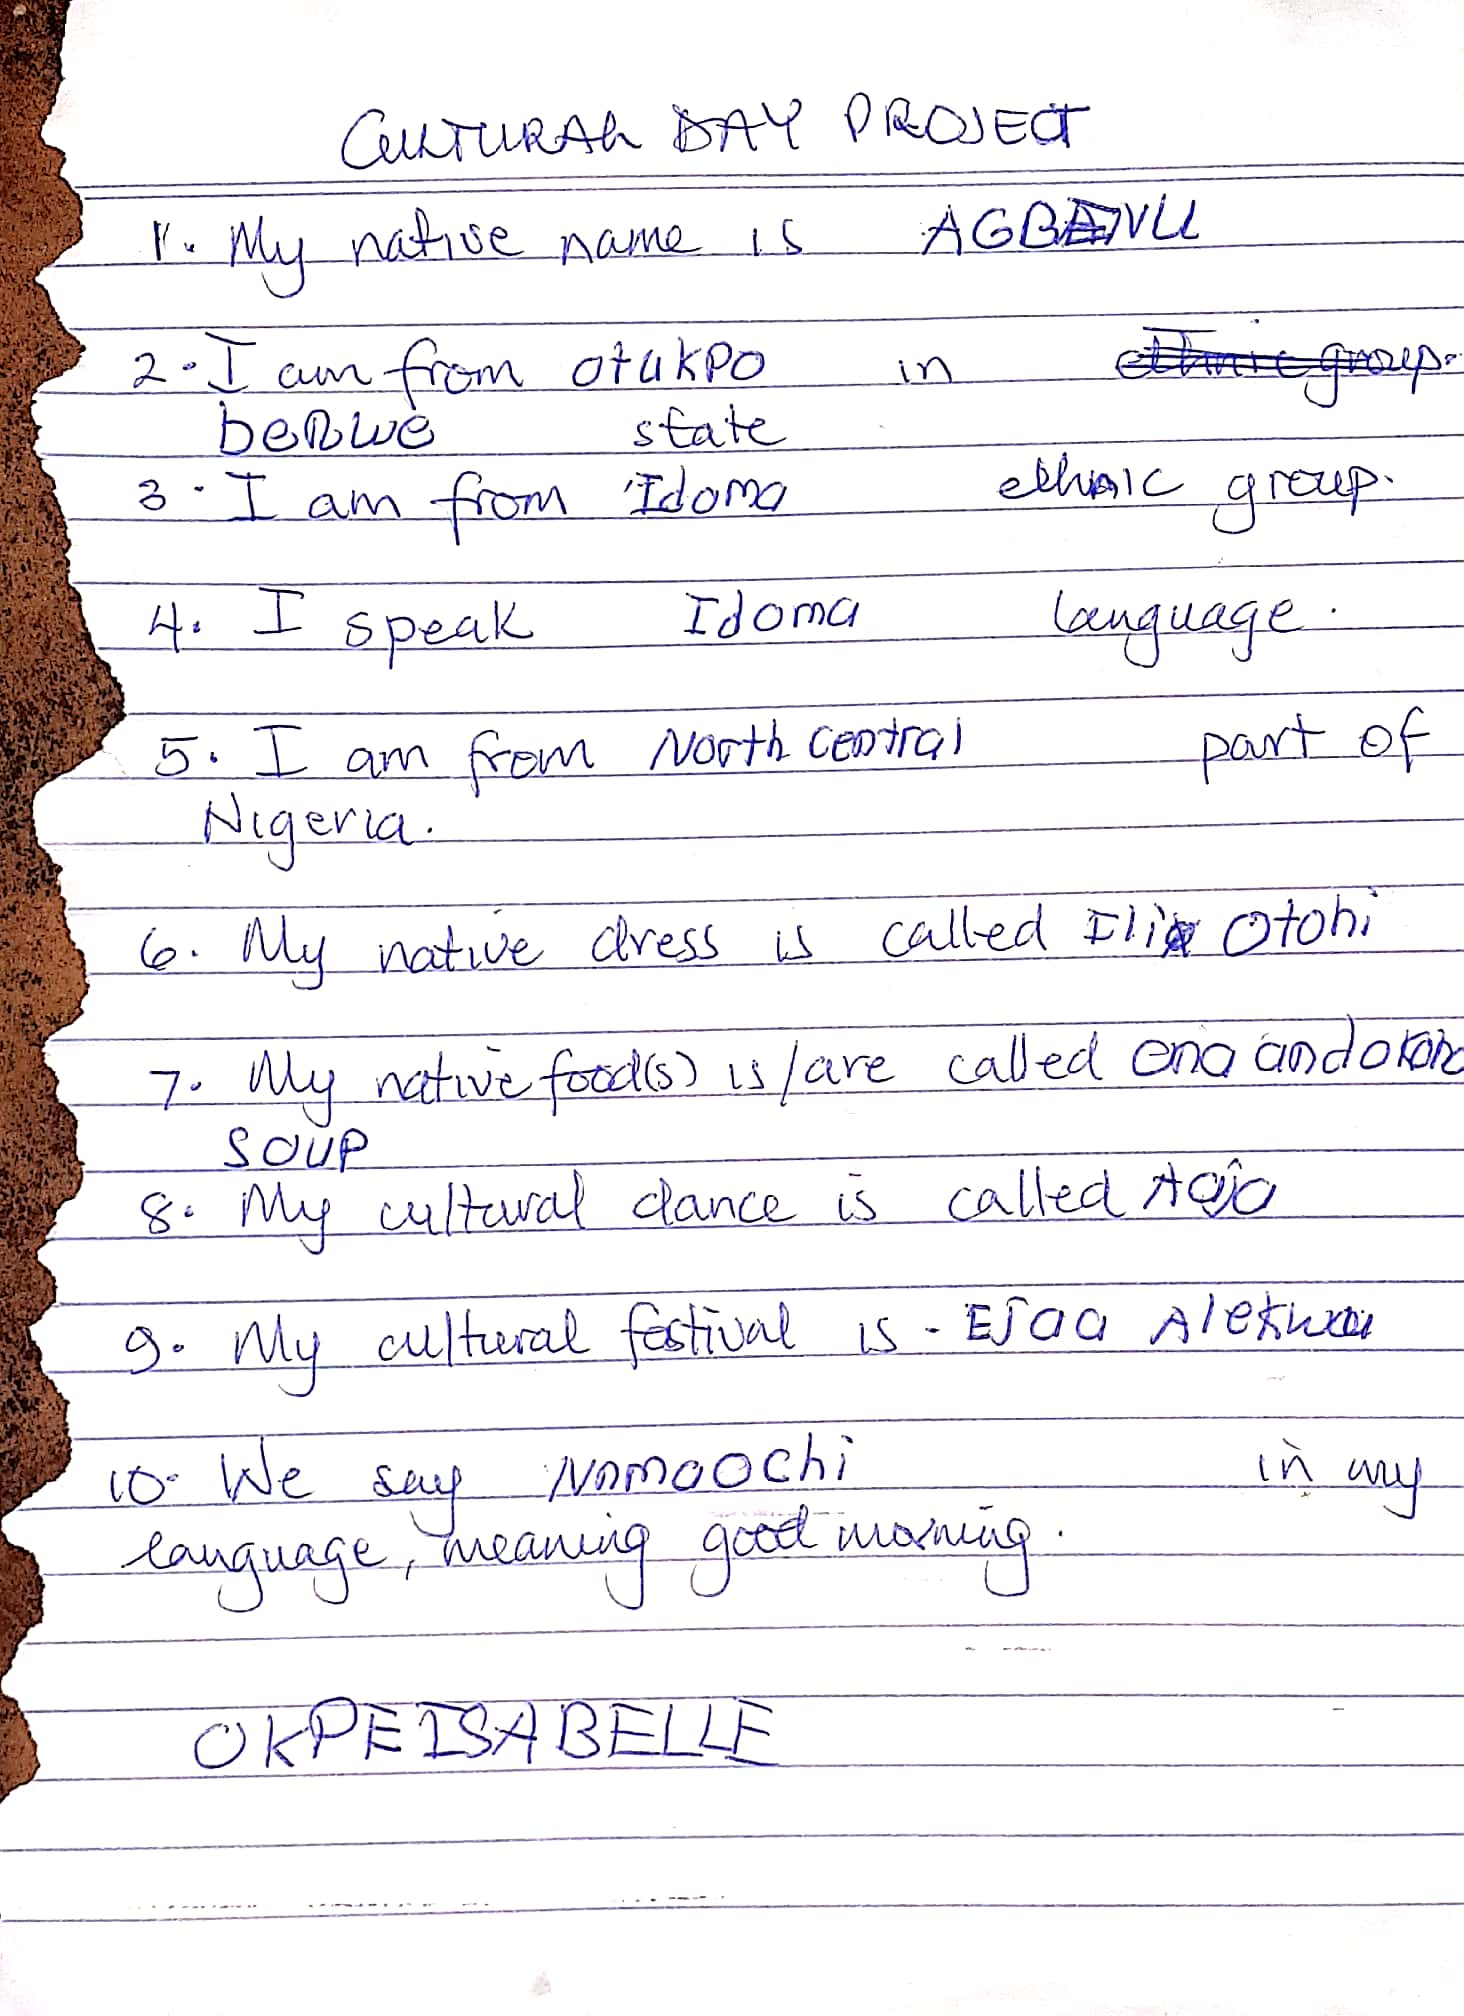 CULTURAL DAY PROJECT
1. My native name is AGBENU
2. I am from otukpo in ethnic group.
benwe state
3. I am from Idoma ethnic group.
4. I speak Idoma language.
5. I am from North central part of
Nigeria.
6. My native dress is called Otohi
7. My native food(s) is/are called ona and
soup
8. My cultural dance is called
9. My cultural festival is - EJaa Alekwu
10. We say Nnmaochi in my
language, meaning good morning.
OKPE ISABELLE